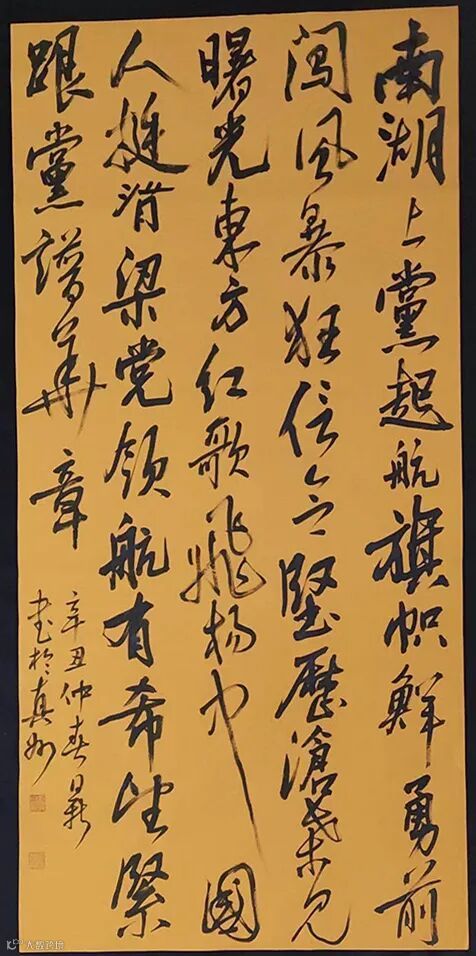 南湖上黨起航旗帜鲜勇前
闯风暴狂信念堅歷滄桑见
曙光東方红歌飛扬中國
人挺脊梁党领航有希望緊
跟黨譜華章
辛丑仲春
書於真州